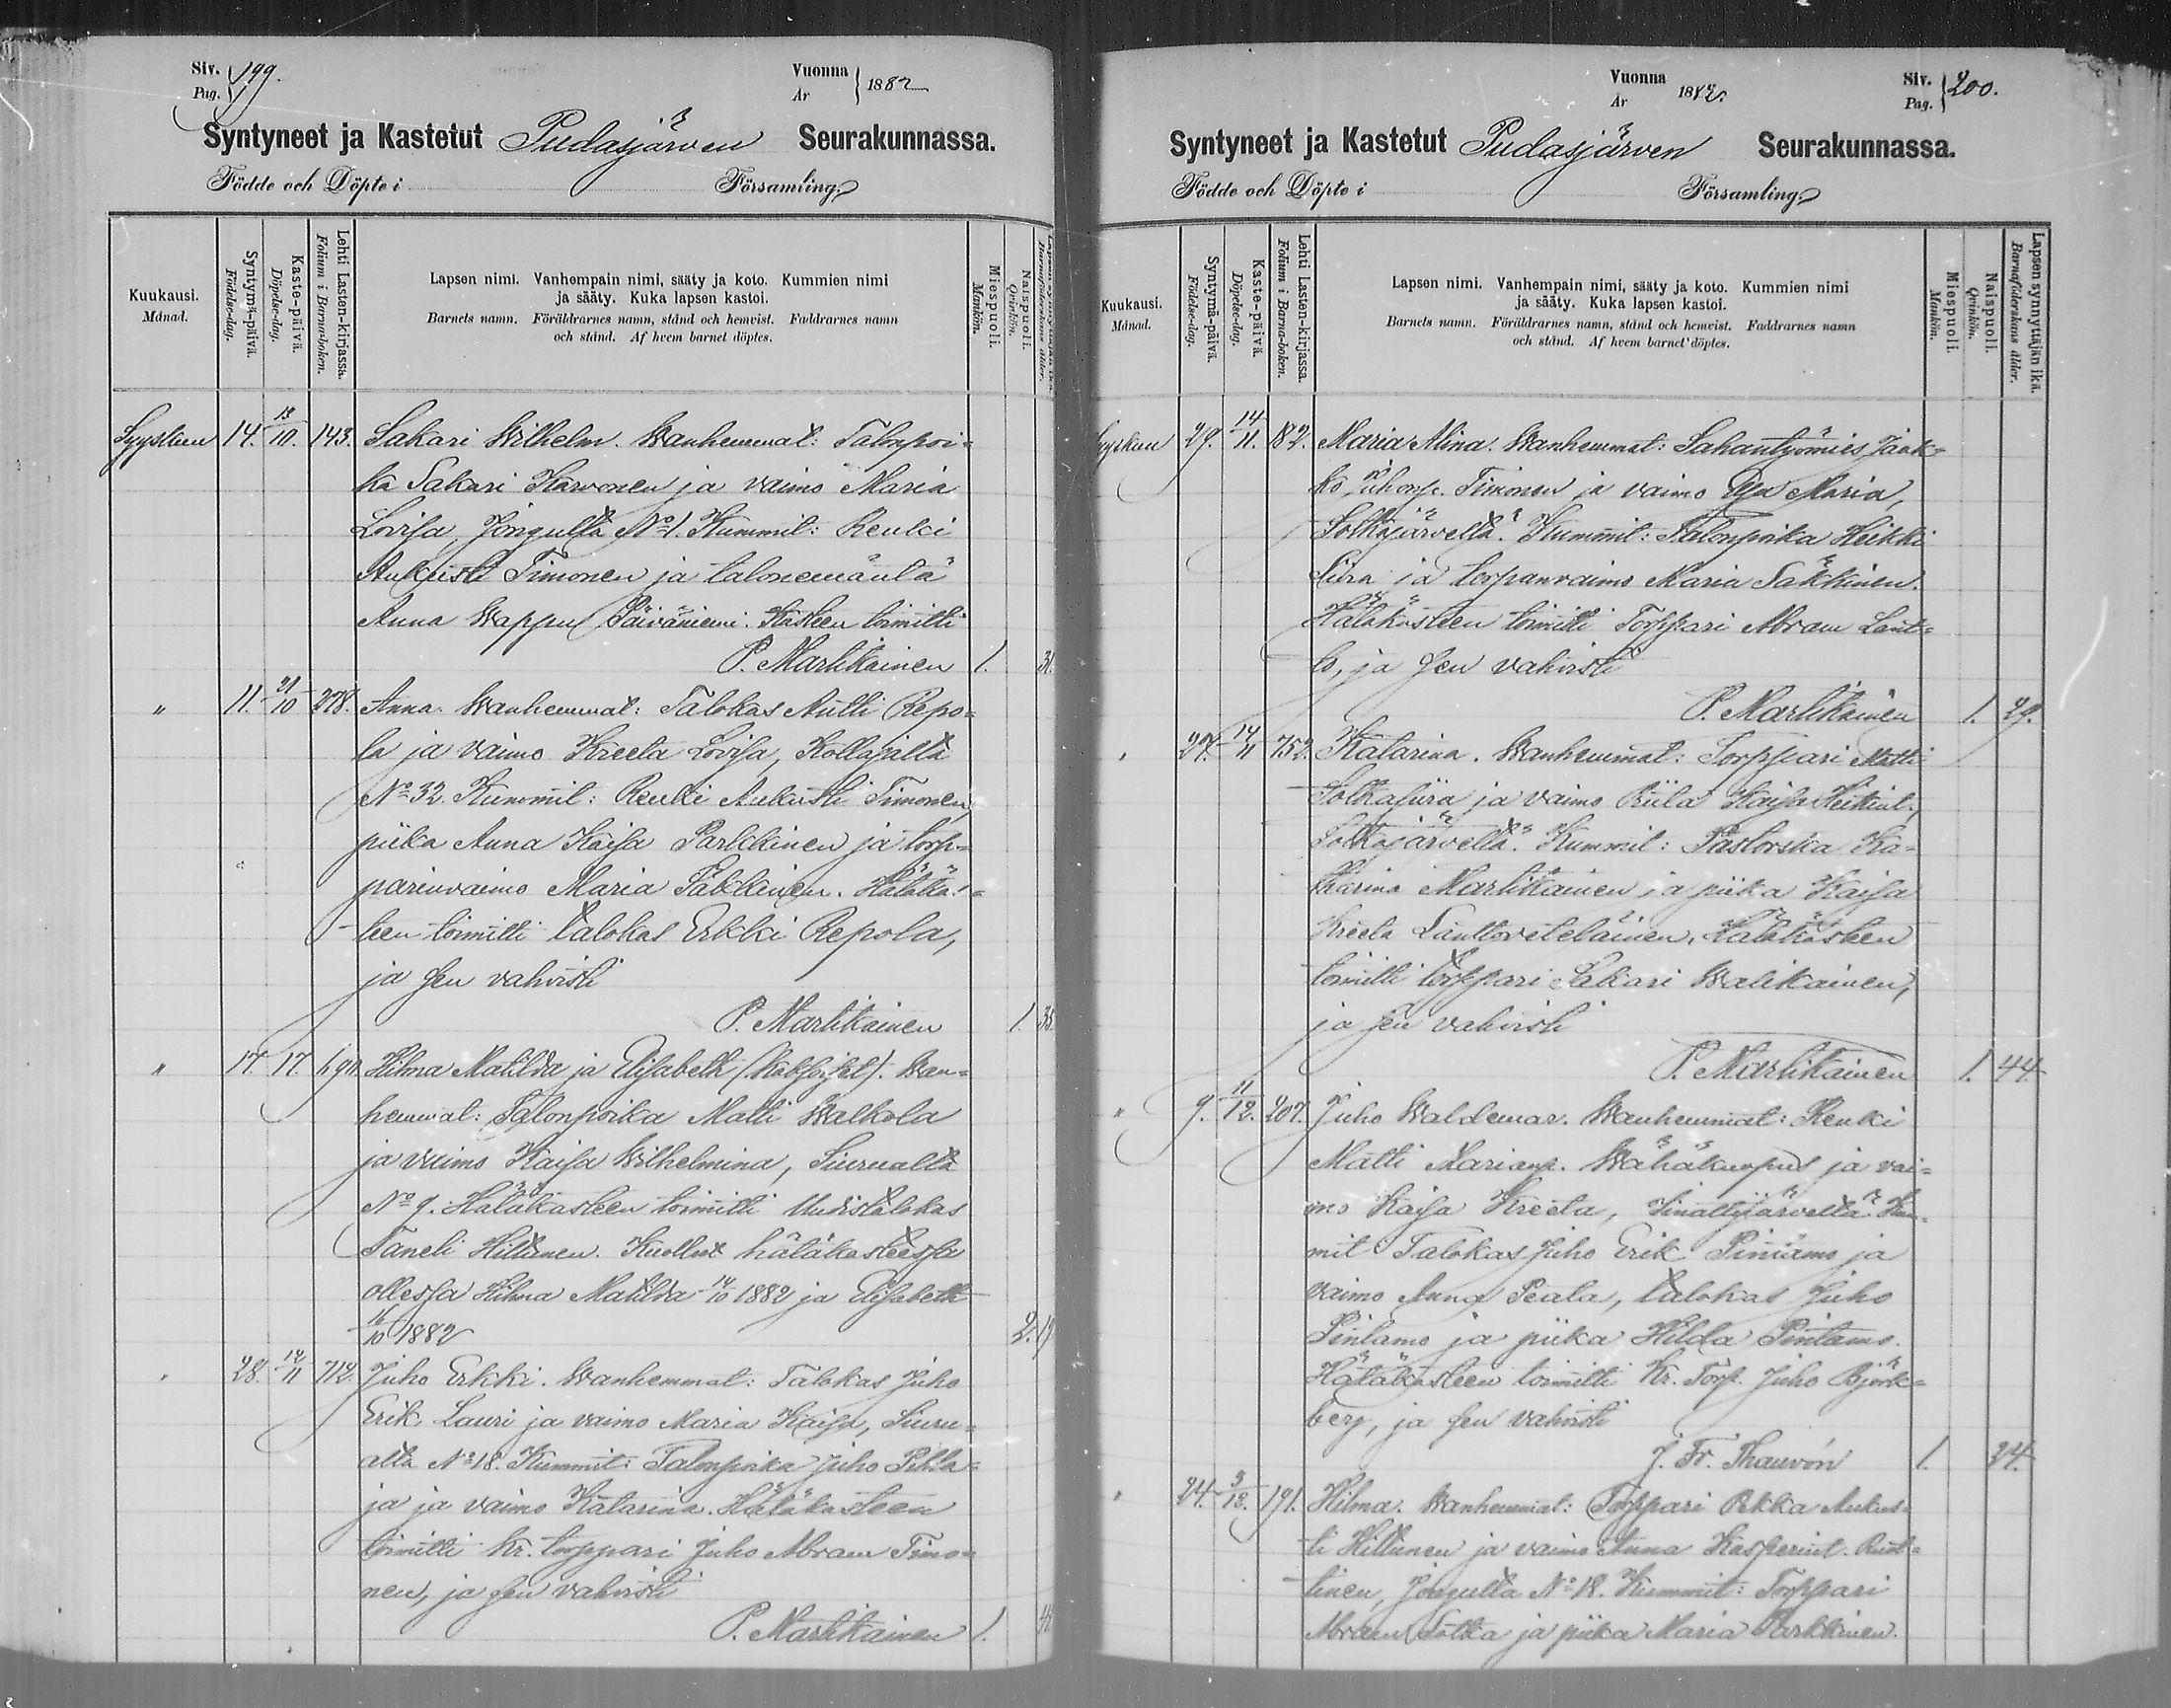 Siv. 199.
Pag.
Vuonna 1882
År
Syntyneet ja Kastetut Pudasjärven Seurakunnassa.
Födde och Döpte i Församling.
Kuukausi.
Månad.
Syntymä-päivä.
Födelse-dag.
Kaste-päivä.
Döpelse-dag.
Lehti Lasten-kirjassa.
Folium i Barna-boken.
Lapsen nimi. Vanhempain nimi, sääty ja koto. Kummien nimi
ja sääty. Kuka lapsen kastoi.
Barnets namn. Föräldrarnes namn, stånd och hemvist. Faddrarnes namn
och stånd. Af hvem barnet döptes.
Miespuoli.
Mankön.
Naispuoli.
Qvinkön.
Barnaföderskans ålder.
Syyskuu 14. 13/10. 143. Sakari Wilhelm. Wanhemmat: Talonpoi-
ka Sakari Harvonen ja vaimo Maria
Lovisa, Jongulta No 1. Kummit: Renki
Aukusti Timonen ja talonemäntä
Anna Wappu Päiväniemi. Kasteen toimitti
P. Martikainen 1. 31.
" 11. 21/10 278. Anna. Wanhemmat: Talokas Antti Repo-
la ja vaimo Kreeta Lovisa, Kollajalta
No 32. Kummit: Renki Aukusti Timonen,
piika Anna Kaisa Parkkinen ja torp-
parinvaimo Maria Säkkinen. Hätäkas-
teen toimitti talokas Erkki Repola,
ja sen vahvisti
P. Martikainen 1. 35.
" 17. 17. 690. Hilma Matilda ja Elisabeth (Kaksoiset). Wan-
hemmat: Talonpoika Matti Walkola
ja vaimo Kaisa Wilhelmina, Siurualta
No 9. Hätäkasteen toimitti Uudistalokas
Taneli Hiltunen. Kuollut hätäkasteessa
ollessa Hilma Matilda 14/10 1882 ja Elisabeth
16/10 1882 2.
28. 12/11 712. Juho Erkki. Wanhemmat: Talokas Juho
Erik Lauri ja vaimo Maria Kaisa, Siuru-
alta No 18. Kummit: Talonpoika Juho Pihla-
ja ja vaimo Katarina. Hätäkasteen
toimitti Kr. torppari Juho Abram Timo-
nen, ja sen vahvisti
P. Martikainen 1.
Vuonna 1882.
År
Siv. 200.
Pag.
Syntyneet ja Kastetut Pudasjärven Seurakunnassa.
Födde och Döpte i Församling.
Kuukausi.
Månad.
Syntymä-päivä.
Födelse-dag.
Kaste-päivä.
Döpelse-dag.
Lehti Lasten-kirjassa.
Folium i Barna-boken.
Lapsen nimi. Vanhempain nimi, sääty ja koto. Kummien nimi
ja sääty. Kuka lapsen kastoi.
Barnets namn. Föräldrarnes namn, stånd och hemvist. Faddrarnes namn
och stånd. Af hvem barnet döptes.
Miespuoli.
Mankön.
Naispuoli.
Qvinkön.
Lapsen synnyttäjän ikä.
Barnaföderskans ålder.
Syyskuu 29. 14/11. 182. Maria Alina. Wanhemmat: Sahantyömies Jaak-
ko Juhonp. Timonen ja vaimo Eva Maria,
Sotkajärveltä. Kummit: Talonpoika Heikki
Siira ja torpanvaimo Maria Säkkinen.
Hätäkasteen toimitti Torppari Abram Laut-
to, ja sen vahvisti
P. Martikainen 1. 29.
27. 14/11 752. Katarina. Wanhemmat: Torppari Matti
Sotkasiira ja vaimo Kaisa Heikint.,
Sotkajärveltä. Kummit: Pastorska Ka-
tharina Martikainen ja piika Kaisa
Kreeta Lauttoveteläinen. Hätäkasteen
toimitti torppari Sakari Walikainen,
ja sen vahvisti
P. Martikainen 1. 44.
" 9. 11/12. 207. Juho Waldemar. Wanhemmat: Renki
Matti Marianp. Wähäkuopus ja vai-
mo Kaisa Kreeta, Kum-
mit Talokas Juho Erik Pintamo ja
vaimo Anna Peala, talokas Juho
Pintamo ja piika Hilda Pintamo.
Hätäkasteen toimitti Kr. Torp. Juho Björk-
berg, ja sen vahvisti
J. Fr. Thauvón 1. 24.
24. 3/12. 191. Hilma. Wanhemmat: Torppari Pekka Aukus-
ti Hiltunen ja vaimo Anna Kasperint. Ruot-
tinen, Jongulta No 18. Kummit: Torppari
Abram Sotka ja piika Maria Parkkinen.